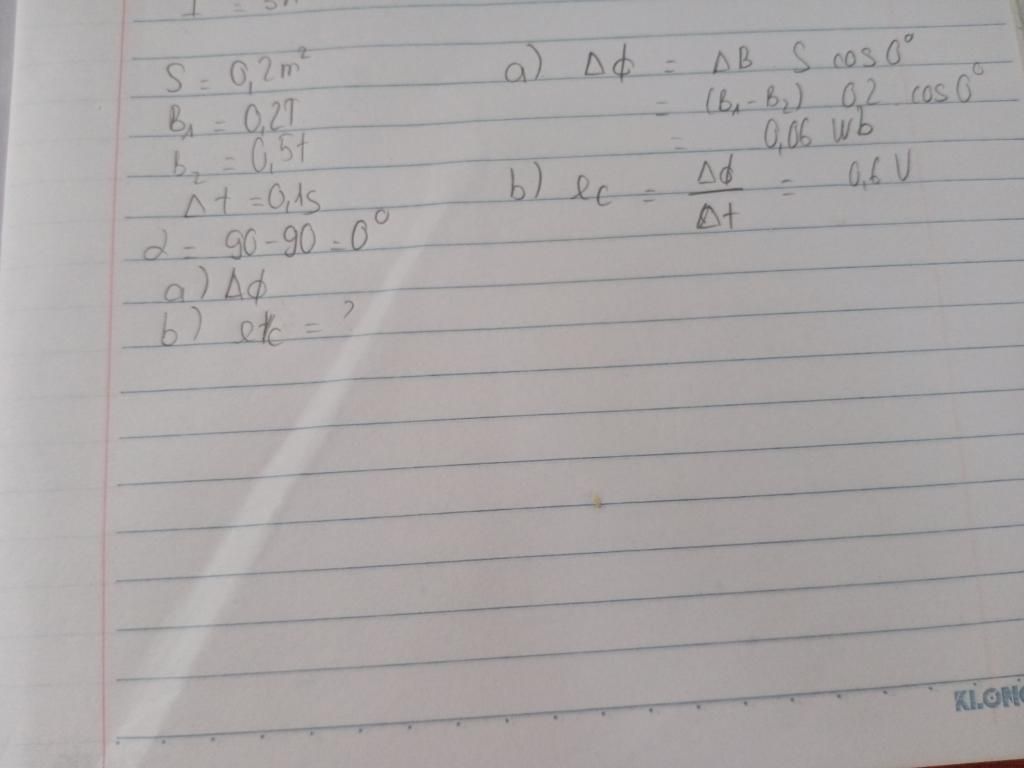 S = 0,2m²
B₁ = 0,2T
b₂ = 0,5t
Δt = 0,1s
α = 90 - 90 = 0°
a) Δφ
b) etc = ?
a) Δφ = ΔB S cos0°
= (B₁ - B₂) 0,2 cos0°
= 0,06 wb
b) ec = Δφ/Δt = 0,6 V